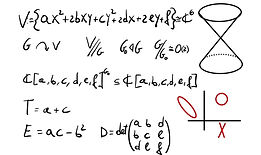 V={ax²+2bxy+cy²+2dx+2ey+f}≅ℂ⁶
G ↷ V V//G G₀⊲G G/G₀=O(2)
ℂ[a,b,c,d,e,f]^G₀ ≤ ℂ[a,b,c,d,e,f]
T = a+c
E = ac-b² D = det(a b d
b c e
d e f)